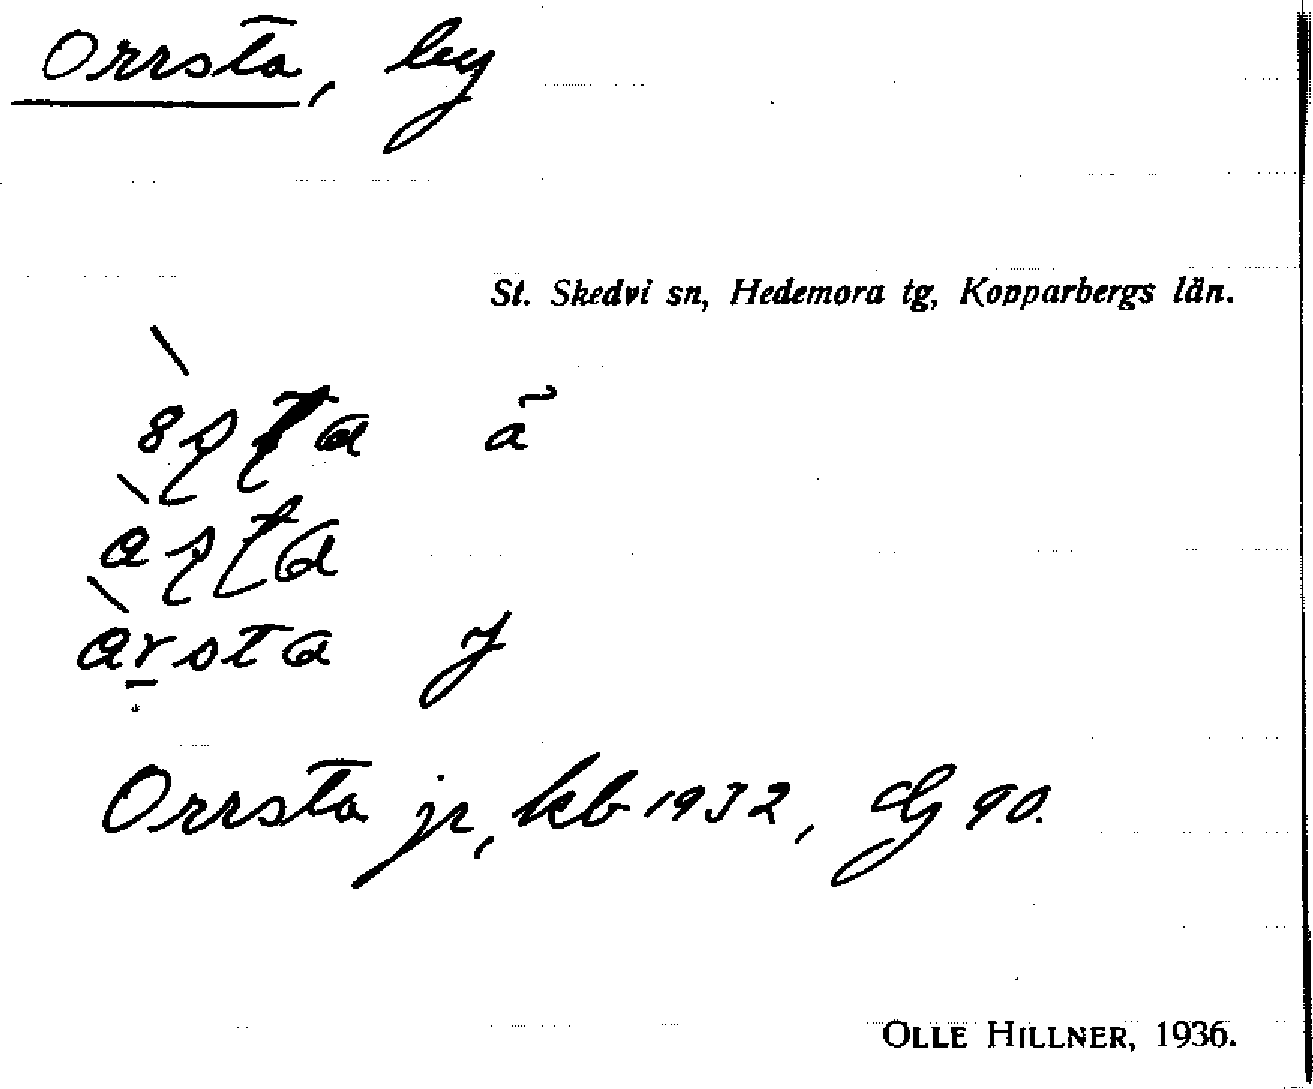 Orrsta, by
St. Skedvi sn, Hedemora tg, Kopparbergs län.
arsta
Orrsta jr, kb 1932, dg 90.
OLLE HILLNER, 1936.